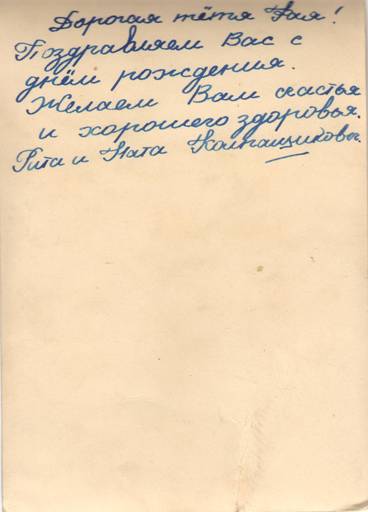 Дорогая тётя Рая!
Поздравляем Вас с
днём рождения.
Желаем Вам счастья
и хорошего здоровья.
Рита и Ната Колпащиковы.